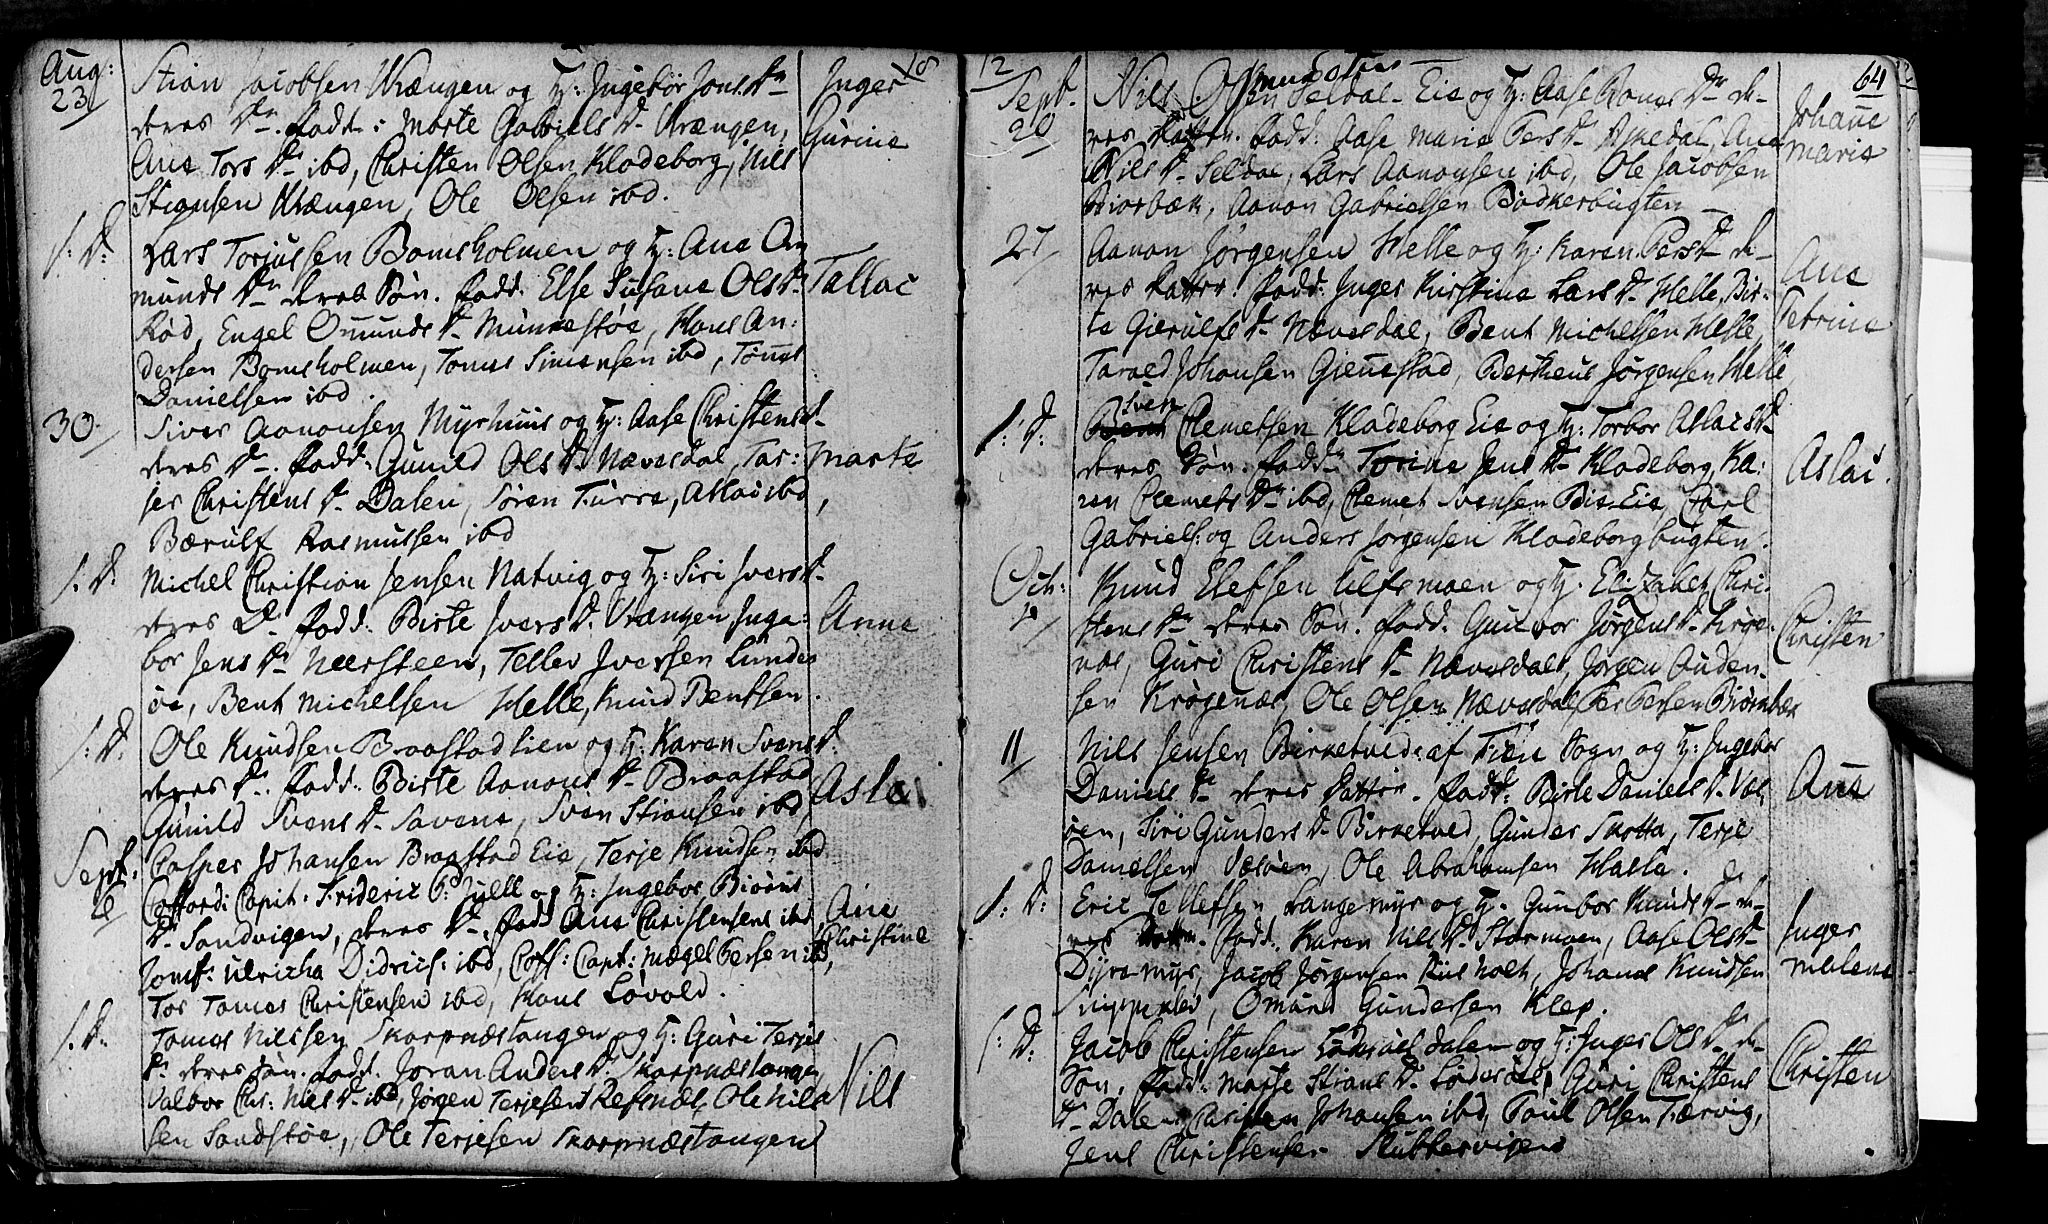 Aug:
23
Stian Jacobsen Vrængen og H: Ingebor Jons Dr
deres Dr. fadd: Marte Gabriels Dr Vrængen,
Ane Tors Dr ibd, Christen Olsen Kladeborg, Nils
Stiansen Vrængen, Ole Olsen ibd.
Inger
Gurine
18
S: D:
Lars Torjussen Bomsholmen og H: Ane Om
munds Dr deres Søn. fadd: Else Susane Ols Dr
Rød, Engel Omunds Dr Munkestøe, Hans An:
dersen Bomsholmen, Tomas Simensen ibd, Tønes
Danielsen ibd.
Tallac
30
Siver Aanonsen Myrhuus og H: Aase Christens Dr
deres Dr. fadd: Gunild Ols Dr Nævesdal, Tar:
jer Christens Dr Dalen, Søren Furre, Aslac ibd,
Bærulf Rasmussen ibd
Marte
S: D:
Michel Christian Jensen Natvig og H: Siri Ivers Dr
deres D. fadd: Birte Ivers Dr Vrangen, Inge:
bor Jens Dr Neersteen, Tellev Iversen Lunde
øe, Bent Michelsen Helle, Knud Bentsen.
Anne
S: D:
Ole Knudsen Braastadlien og H: Karen Svens Dr:
deres Dr. fadd: Birte Aanons Dr Braastad
Gunild Svens Dr Savene, Sven Stiansen ibd,
Casper Johansen Braastad Eie, Terje Knudsen ibd
Asle
Sept:
6
Coffardi Capit: Frideric P: Juell og H: Ingebor Biørns
Dr Sandvigen, deres Dr. fadd: Ane Christensens ibd
Jomf: Ulricha Didrics: ibd, Coff: Capt: Mægel Persen ibd,
Tor Tomas Christensen ibd, Hans Løvold.
Ane
Christine
S: D:
Tomas Nilssen Skarpnæstangen og H: Guri Terjes
Dr deres Søn. fadd: Joran Anders Dr. Skarpnæstangen
Salbor Chr: Nils Dr ibd, Jørgen Terjesen Refsnæs, Ole Nils
sen Sandstøe, Ole Terjesen Skarpnæstangen
Nils
12
64
Sept.
20
Nils Omundsen Seldal Eie og H: Aase Aanons Dr de-
res Datter. fadd: Aase Marie Pers Dr Askedal, Ane
Nils Dr Seldal, Lars Aanonsen ibd, Ole Jacobsen
Biorbæk, Aanon Gabrielsen Bødkerbugten
Johane
Marie
27
Aanon Jørgensen Helle og H: Karen Pers Dr de-
res Datter. fadd: Inger Kirstine Lars Dr Helle, Bir-
te Gierulfs Dr Nævesdal, Bent Michelsen Helle
Taraed Johansen Gienestad, Bertheus Jørgensen Helle
Ane
Petrine
S: D:
Sven Clemetsen Kladeborg Eie og H: Torbor Aslacs Dr
deres Søn. fadd: Torine Jens Dr Kladeborg, Ka:
ren Clemets Dr ibd, Clemet Svensen Bie Eie, Carl
Gabriels: og Anders Jørgensen Kladeborgbugten.
Aslac
Octr:
4
Knud Elefsen Ulfsmoen og H: Elizabeth Chri-
stens Dr deres Søn. fadd: Gunvor Jørgens Dr Krøge-
næs, Guri Christens Dr Nævesdal, Jørgen Auden-
sen Krøgenæs, Ole Olsen Nævesdal, Per Persen Biørnbæk
Christen
11
Nils Jensen Birketved: af Fiære Sogn og H: Ingebor
Daniels Dr deres Datter. fadd: Birte Daniels Dr Væs
øen, Siri Gunders Dr Birketved, Gunder Skotta, Terje
Danielsen Væsøen, Ole Abrahamsen Halle.
Ane
S: D:
Eric Tellefsen Langemyr og H: Gunbor Knuds Dr de-
res Dattr. fadd: Karen Nils Dr Stormoen, Aase Ols Dr
Dyremyr, Jacob Jørgensen Riisholt, Johanes Knudsen
Snippekled, Omund Gundersen Klep.
Inger
Malene
S: D:
Jacob Christensen Lødesøel dalen og H: Inger Ols Dr de-
Søn, fadd: Marte Stians Dr Lødesøel, Guri Christens
Dr Dalen, Christen Johansen ibd, Poul Olsen Færvig,
Jens Christensen Stubkervigen
Christen